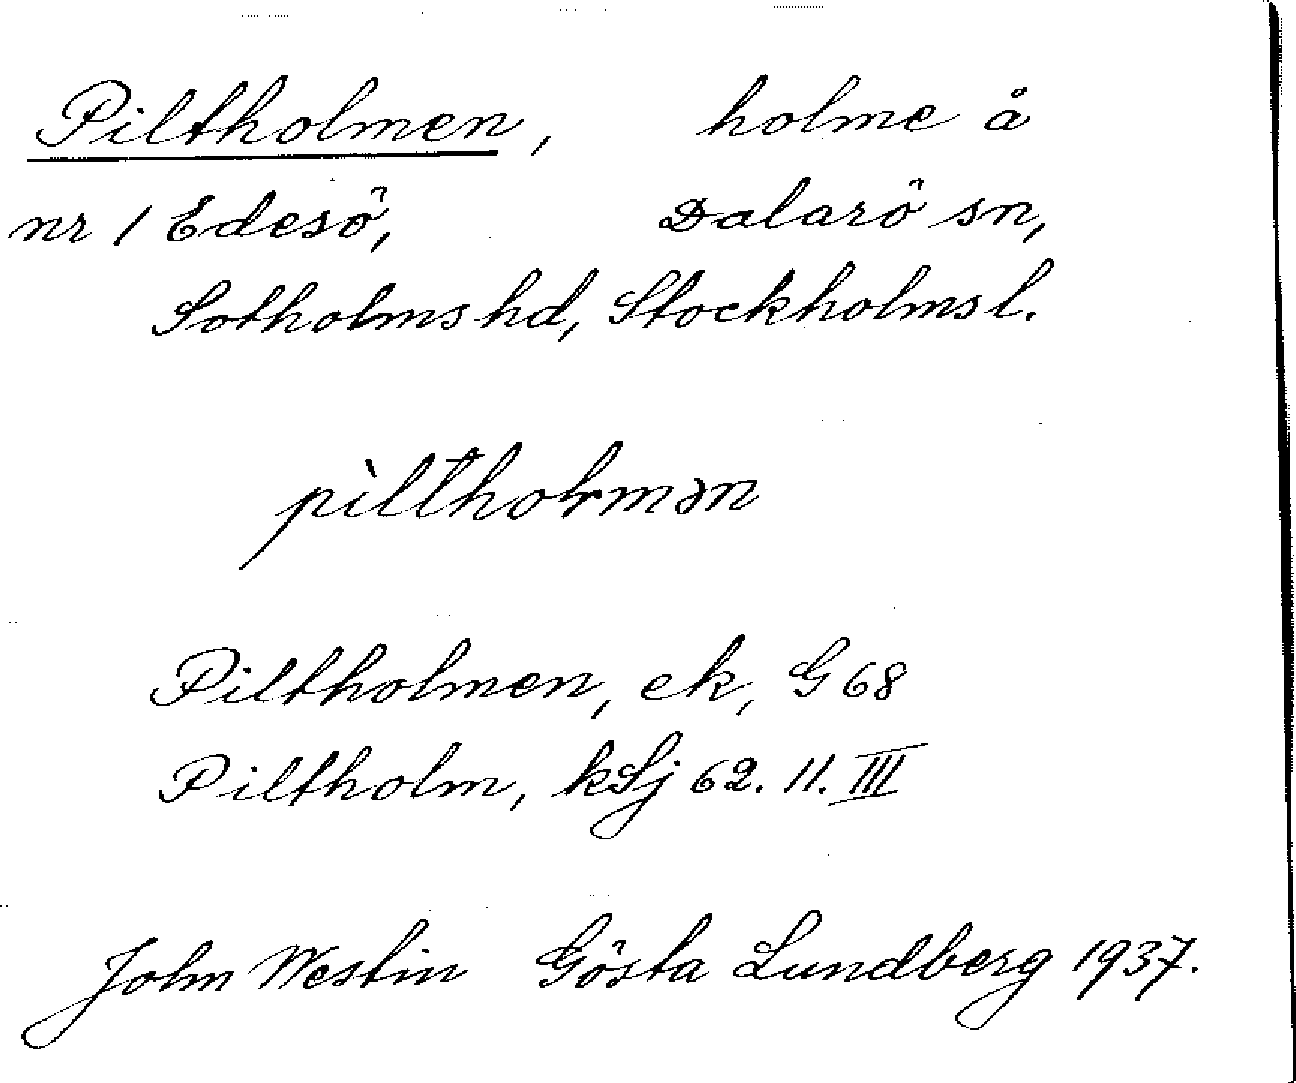 Piltholmen, holme å
nr 1 Edesö, Dalarö sn,
Sotholms hd, Stockholms l.
pìltholmən
Piltholmen, ek, G 68
Piltholm, kSj 62. 11. III
John Westin Gösta Lundberg 1937.